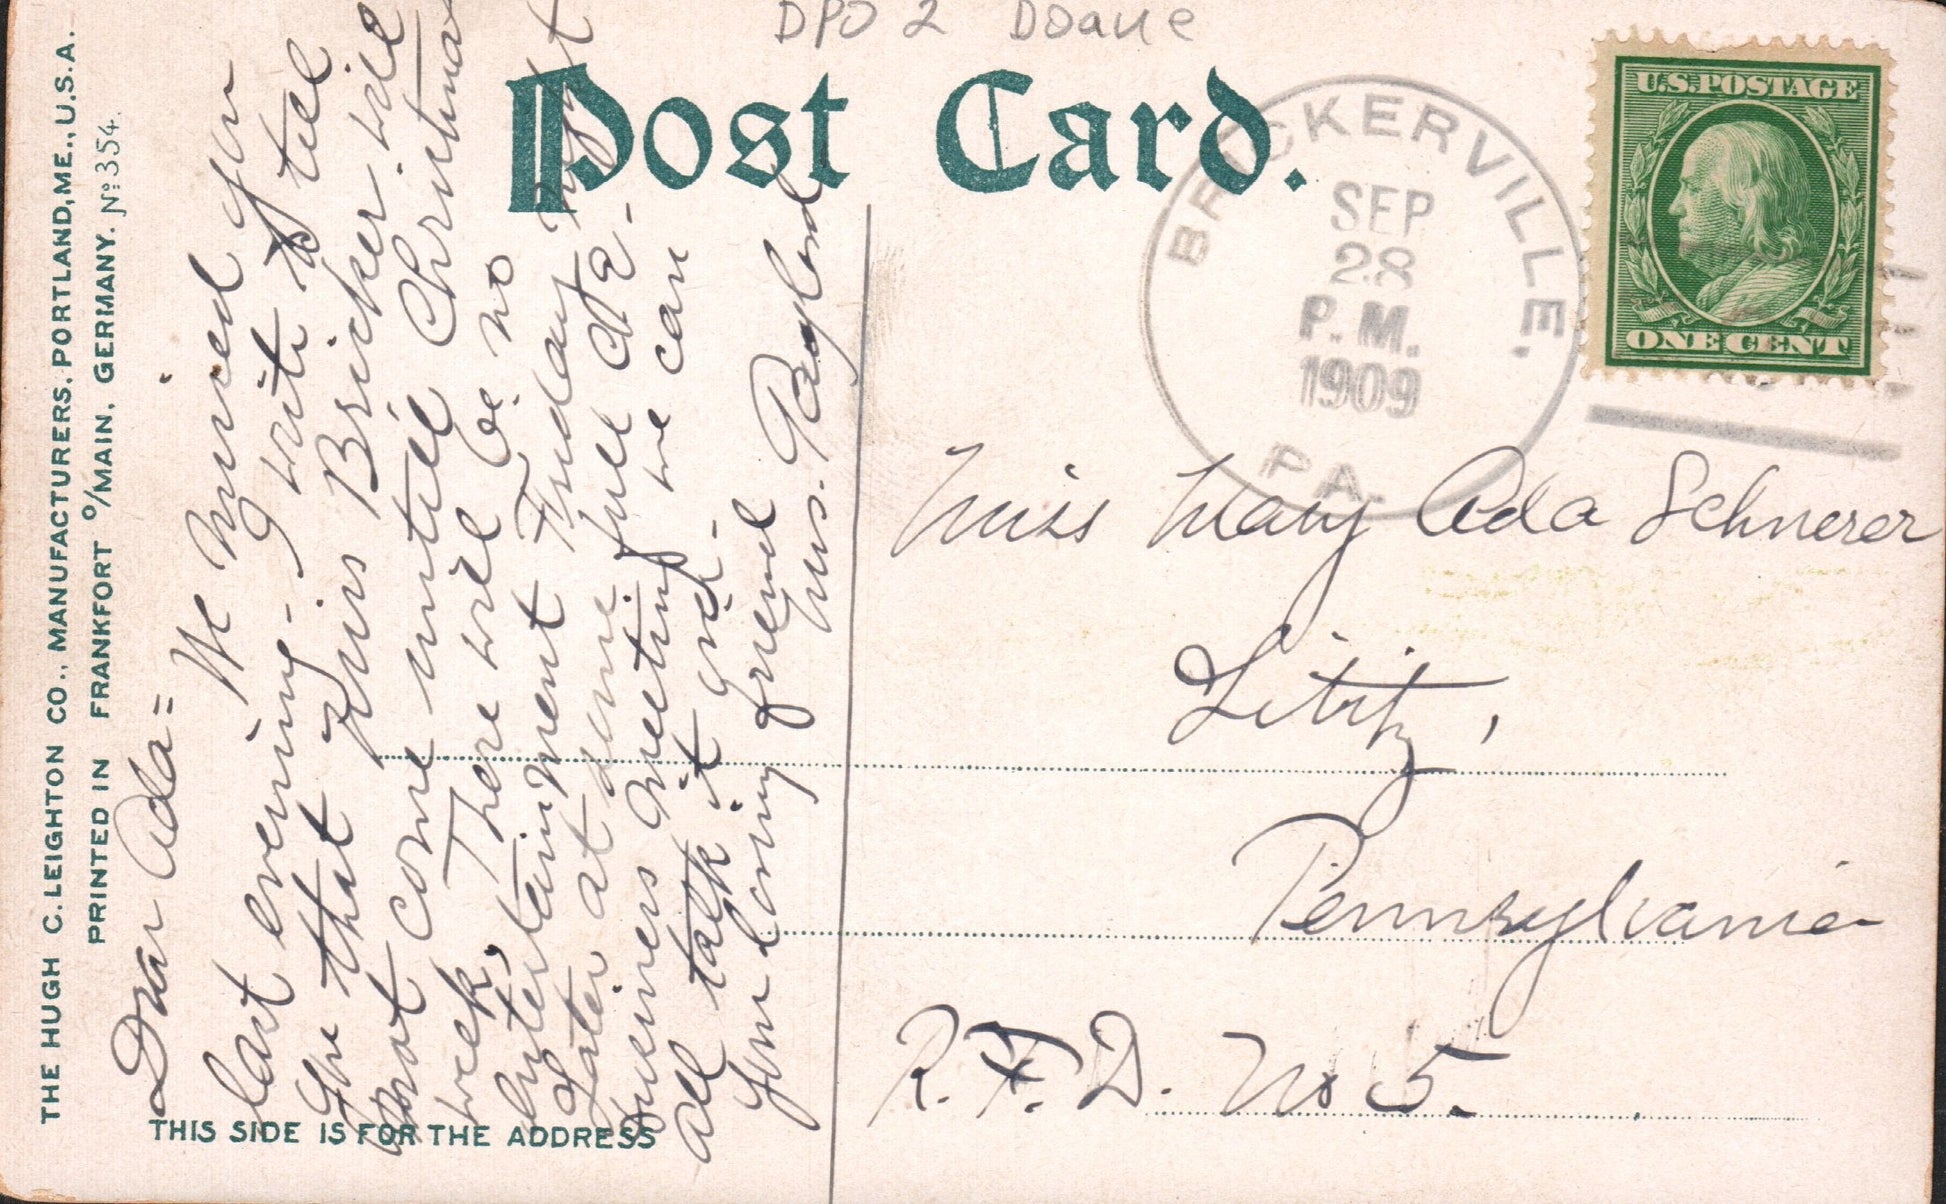 DPO 2 Doane
Post Card.
BRICKERVILLE,
PA.
SEP
28
P.M.
1909
U.S. POSTAGE
ONE CENT
THE HUGH C. LEIGHTON CO., MANUFACTURERS, PORTLAND, ME., U.S.A.
PRINTED IN FRANKFORT o/MAIN, GERMANY. No 354.
Dear Ada=
We missed you
last evening. I write to tell
you that Miss Bricker will
not come untill Christmas
week, There will be no
Entertainment Friday night
Later at some full
business meeting we can
all talk it over.
Your loving friend
Mrs.
Miss Mary Ada Schnerer
Lititz,
Pennsylvania
R.F.D. No 5.
THIS SIDE IS FOR THE ADDRESS